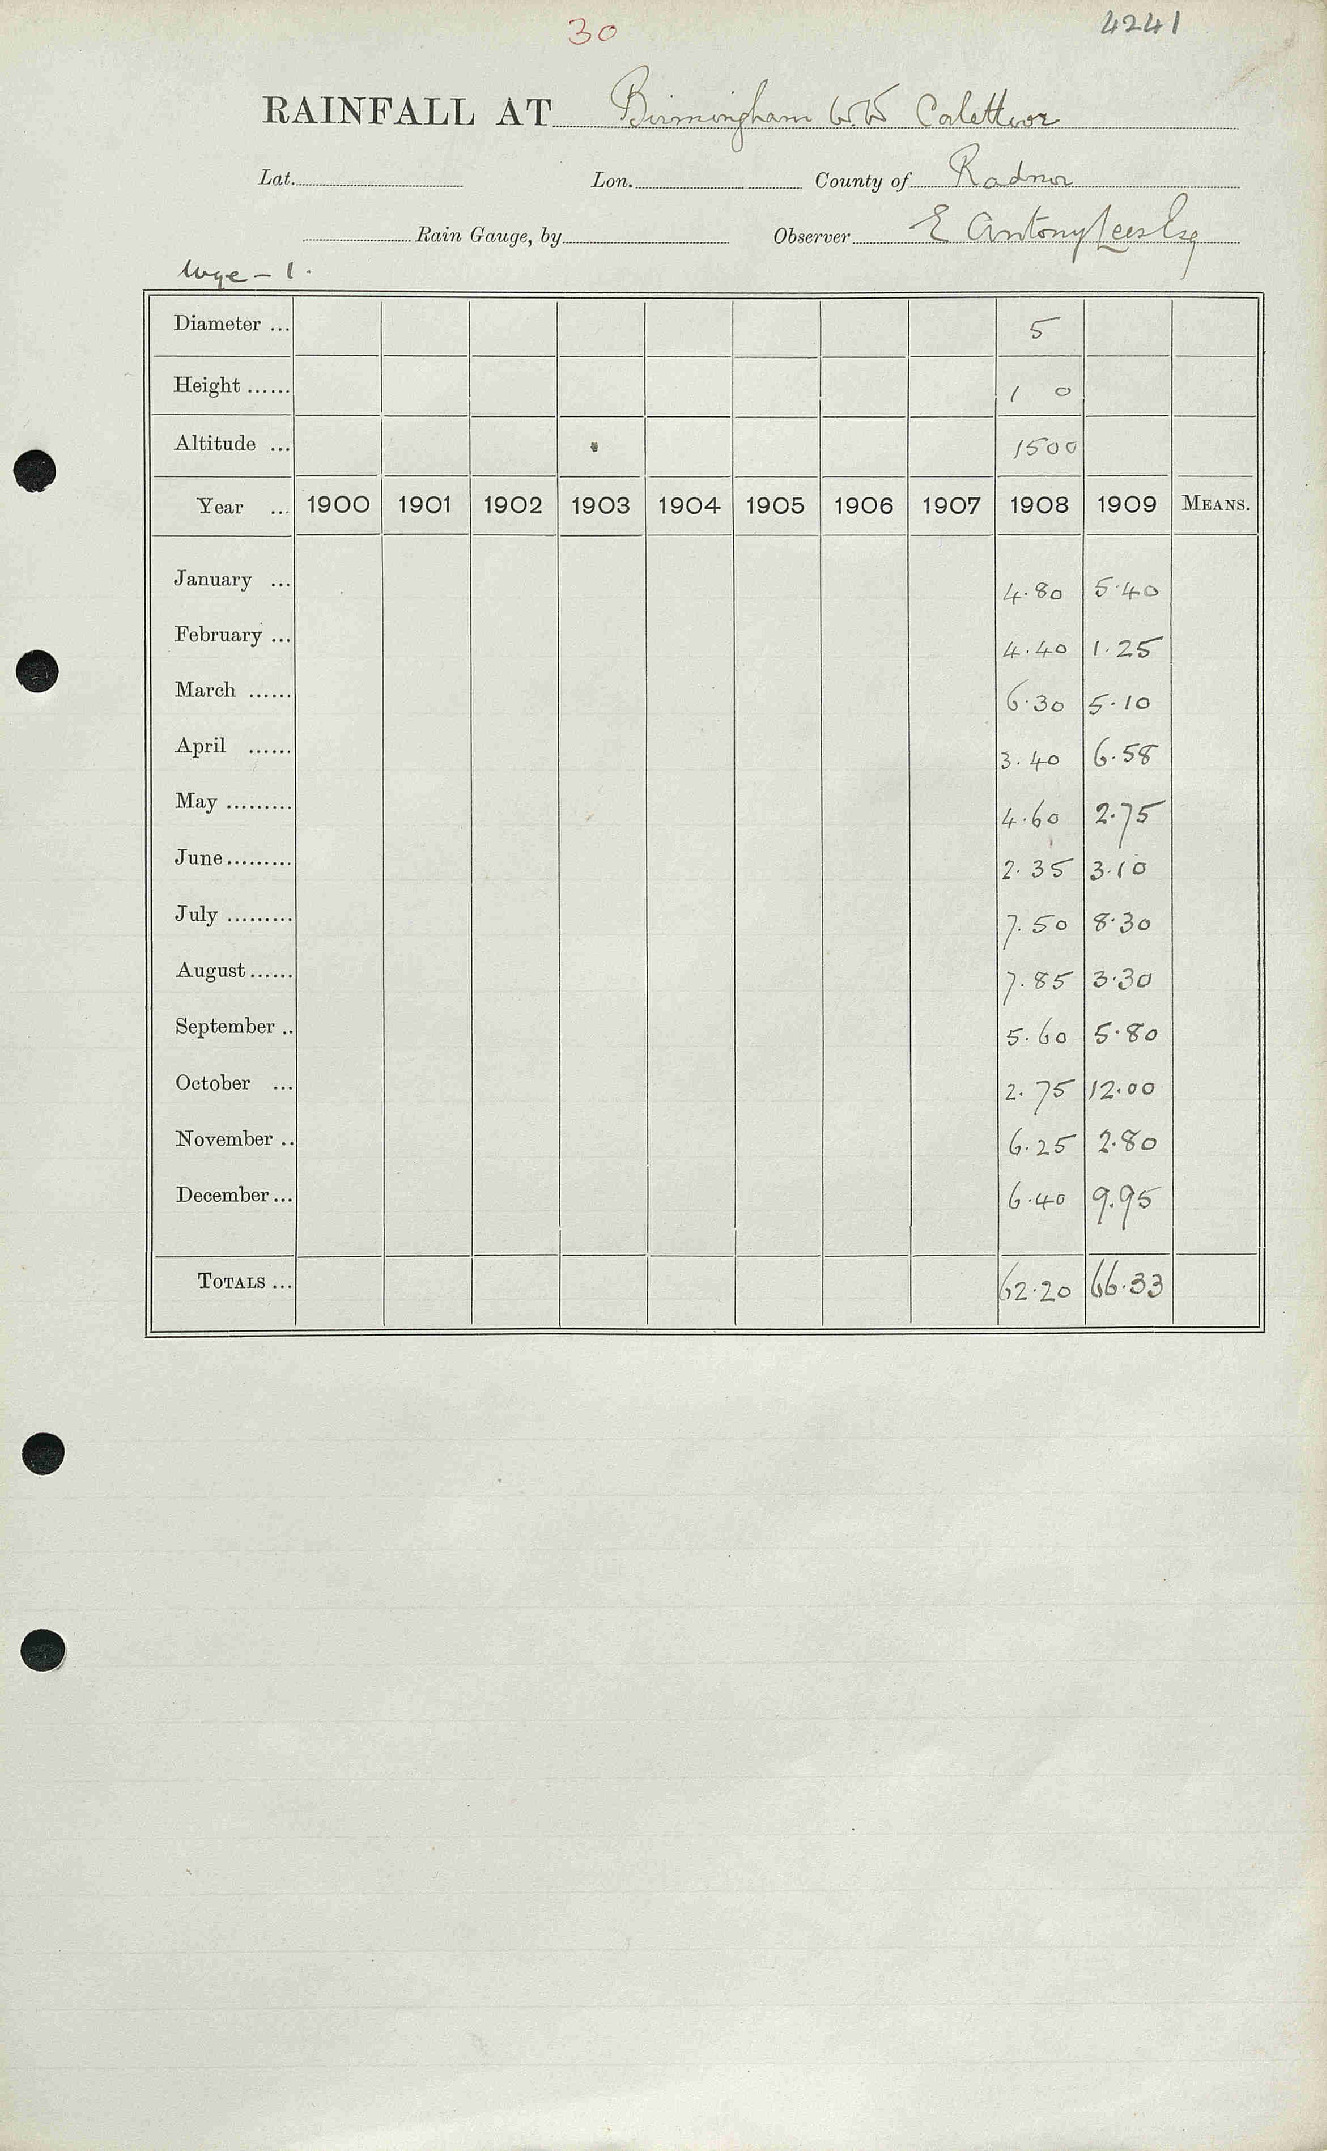 30 4241
RAINFALL AT Birmingham W.W Calettwr
Lat. Lon. County of Radnor
Rain Gauge, by Observer E Antony Lees Esq
Wye - 1.
Diameter ... 5
Height ...... 1 0
Altitude ... 1500
Year ... 1900 1901 1902 1903 1904 1905 1906 1907 1908 1909 MEANS.
January ... 4.80 5.40
February ... 4.40 1.25
March ...... 6.30 5.10
April ...... 3.40 6.58
May ......... 4.60 2.75
June ......... 2.35 3.10
July ......... 7.50 8.30
August ...... 7.85 3.30
September .. 5.60 5.80
October ... 2.75 12.00
November .. 6.25 2.80
December ... 6.40 9.95
TOTALS ... 62.20 66.33